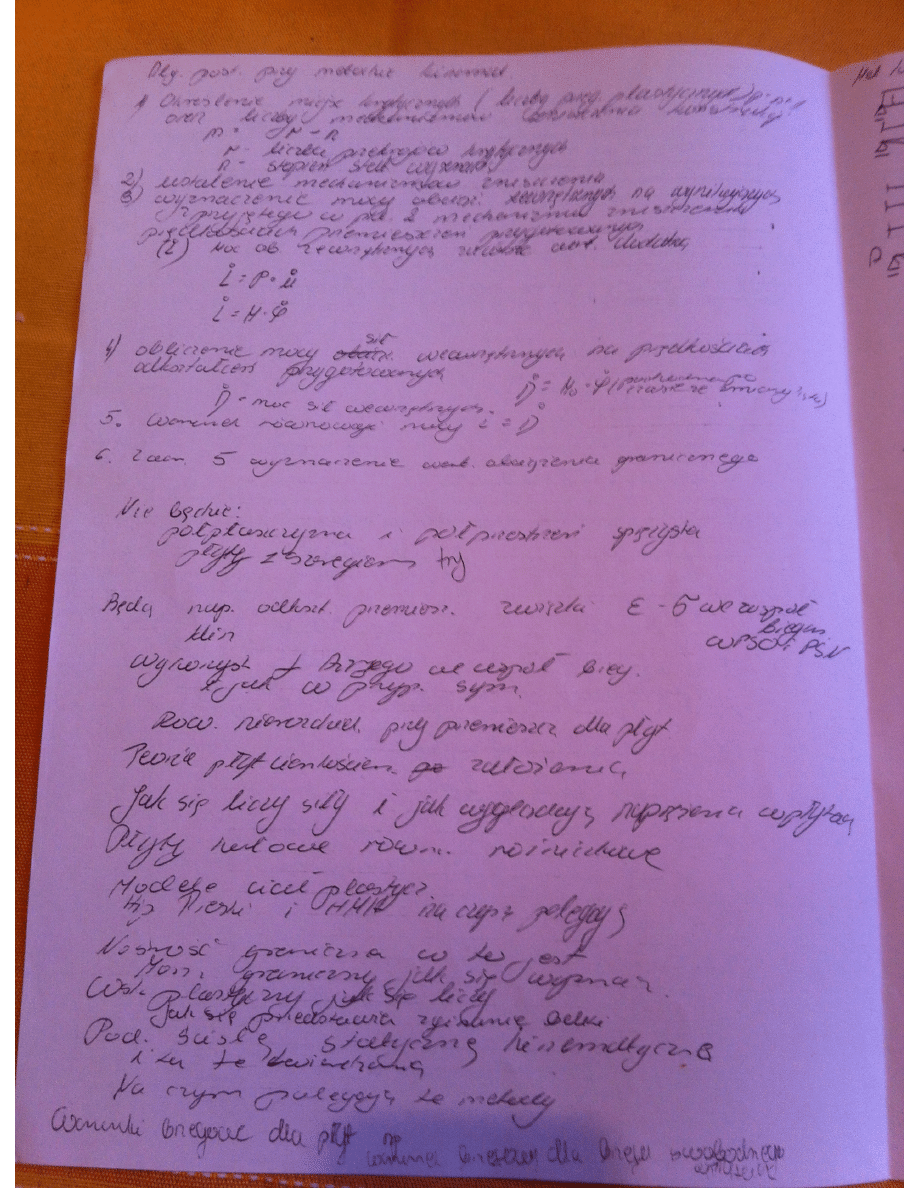 Alg. post. przy metodzie kinemat.
1) Określenie miejsc krytycznych (liczby prz. plastycznych)
oraz liczby mechanizmów zniszczenia konstrukcji
m = r - n
r - liczba przekrojów krytycznych
n - stopień stat. wyznacz.
2) ustalenie mechanizmów zniszczenia
3) wyznaczenie mocy obciąż. zewnętrznych na wynikających
z przyjętego w pkt. 2 mechanizmu zniszczenia
prędkościach przemieszczeń przygotowanych
(L) moc ob. zewnętrznych zawsze dodatnia
L̊ = P · ů
L̊ = M · φ̊
4) obliczenie mocy sił wewnętrznych na prędkościach
odkształceń przygotowanych
D̊ = M₀ · φ̊
D̊ - moc sił wewnętrznych.
5. warunek równowagi mocy L̊ = D̊
6. z war. 5 wyznaczenie wart. obciążenia granicznego
Nie będzie:
półpłaszczyzna i półprzestrzeń sprężysta
płyty z szeregiem try
Będą nap. odkszt. przemiesz. związki ε - σ we współ
biegun
klin
w PSO i PSN
we współ bieg.
i jak w przyp. sym.
Rów. nierozdziel. przy przemieszcz dla płyt
Teoria płyt cienkościen. założenia
Jak się liczy siły i jak wyglądają naprężenia w płytach
Płyty kołowe równ. różniczkowe
Modele ciał plastycz.
Hip Treski i HMH na czym polegają
Nośność graniczna co to jest
Mom. graniczny jak się wyznacz.
Wsk. plastyczny jak się liczy
Jak się przedstawia zginanie belki
Pod. ścisłe, statyczną, kinematyczna
i tu te twierdzenia
Na czym polegają te metody
Warunki brzegowe dla płyt np
warunki brzegowe dla brzegu swobodnego